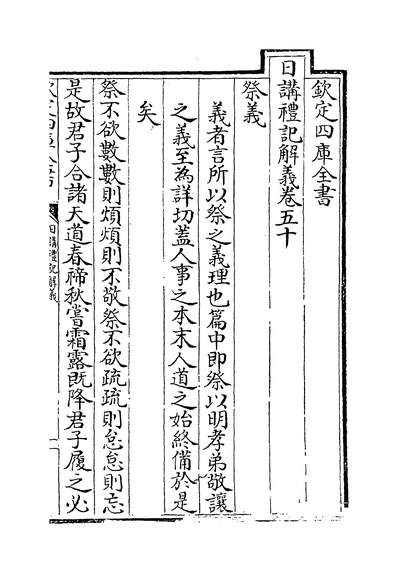 欽定四庫全書
日講禮記解義卷五十
祭義
義者言所以祭之義理也篇中即祭以明孝弟敬讓
之義至為詳切蓋人事之本末人道之始終備於是
矣
祭不欲數數則煩煩則不敬祭不欲疏疏則怠怠則忘
是故君子合諸天道春禘秋嘗霜露既降君子履之必
日講禮記解義